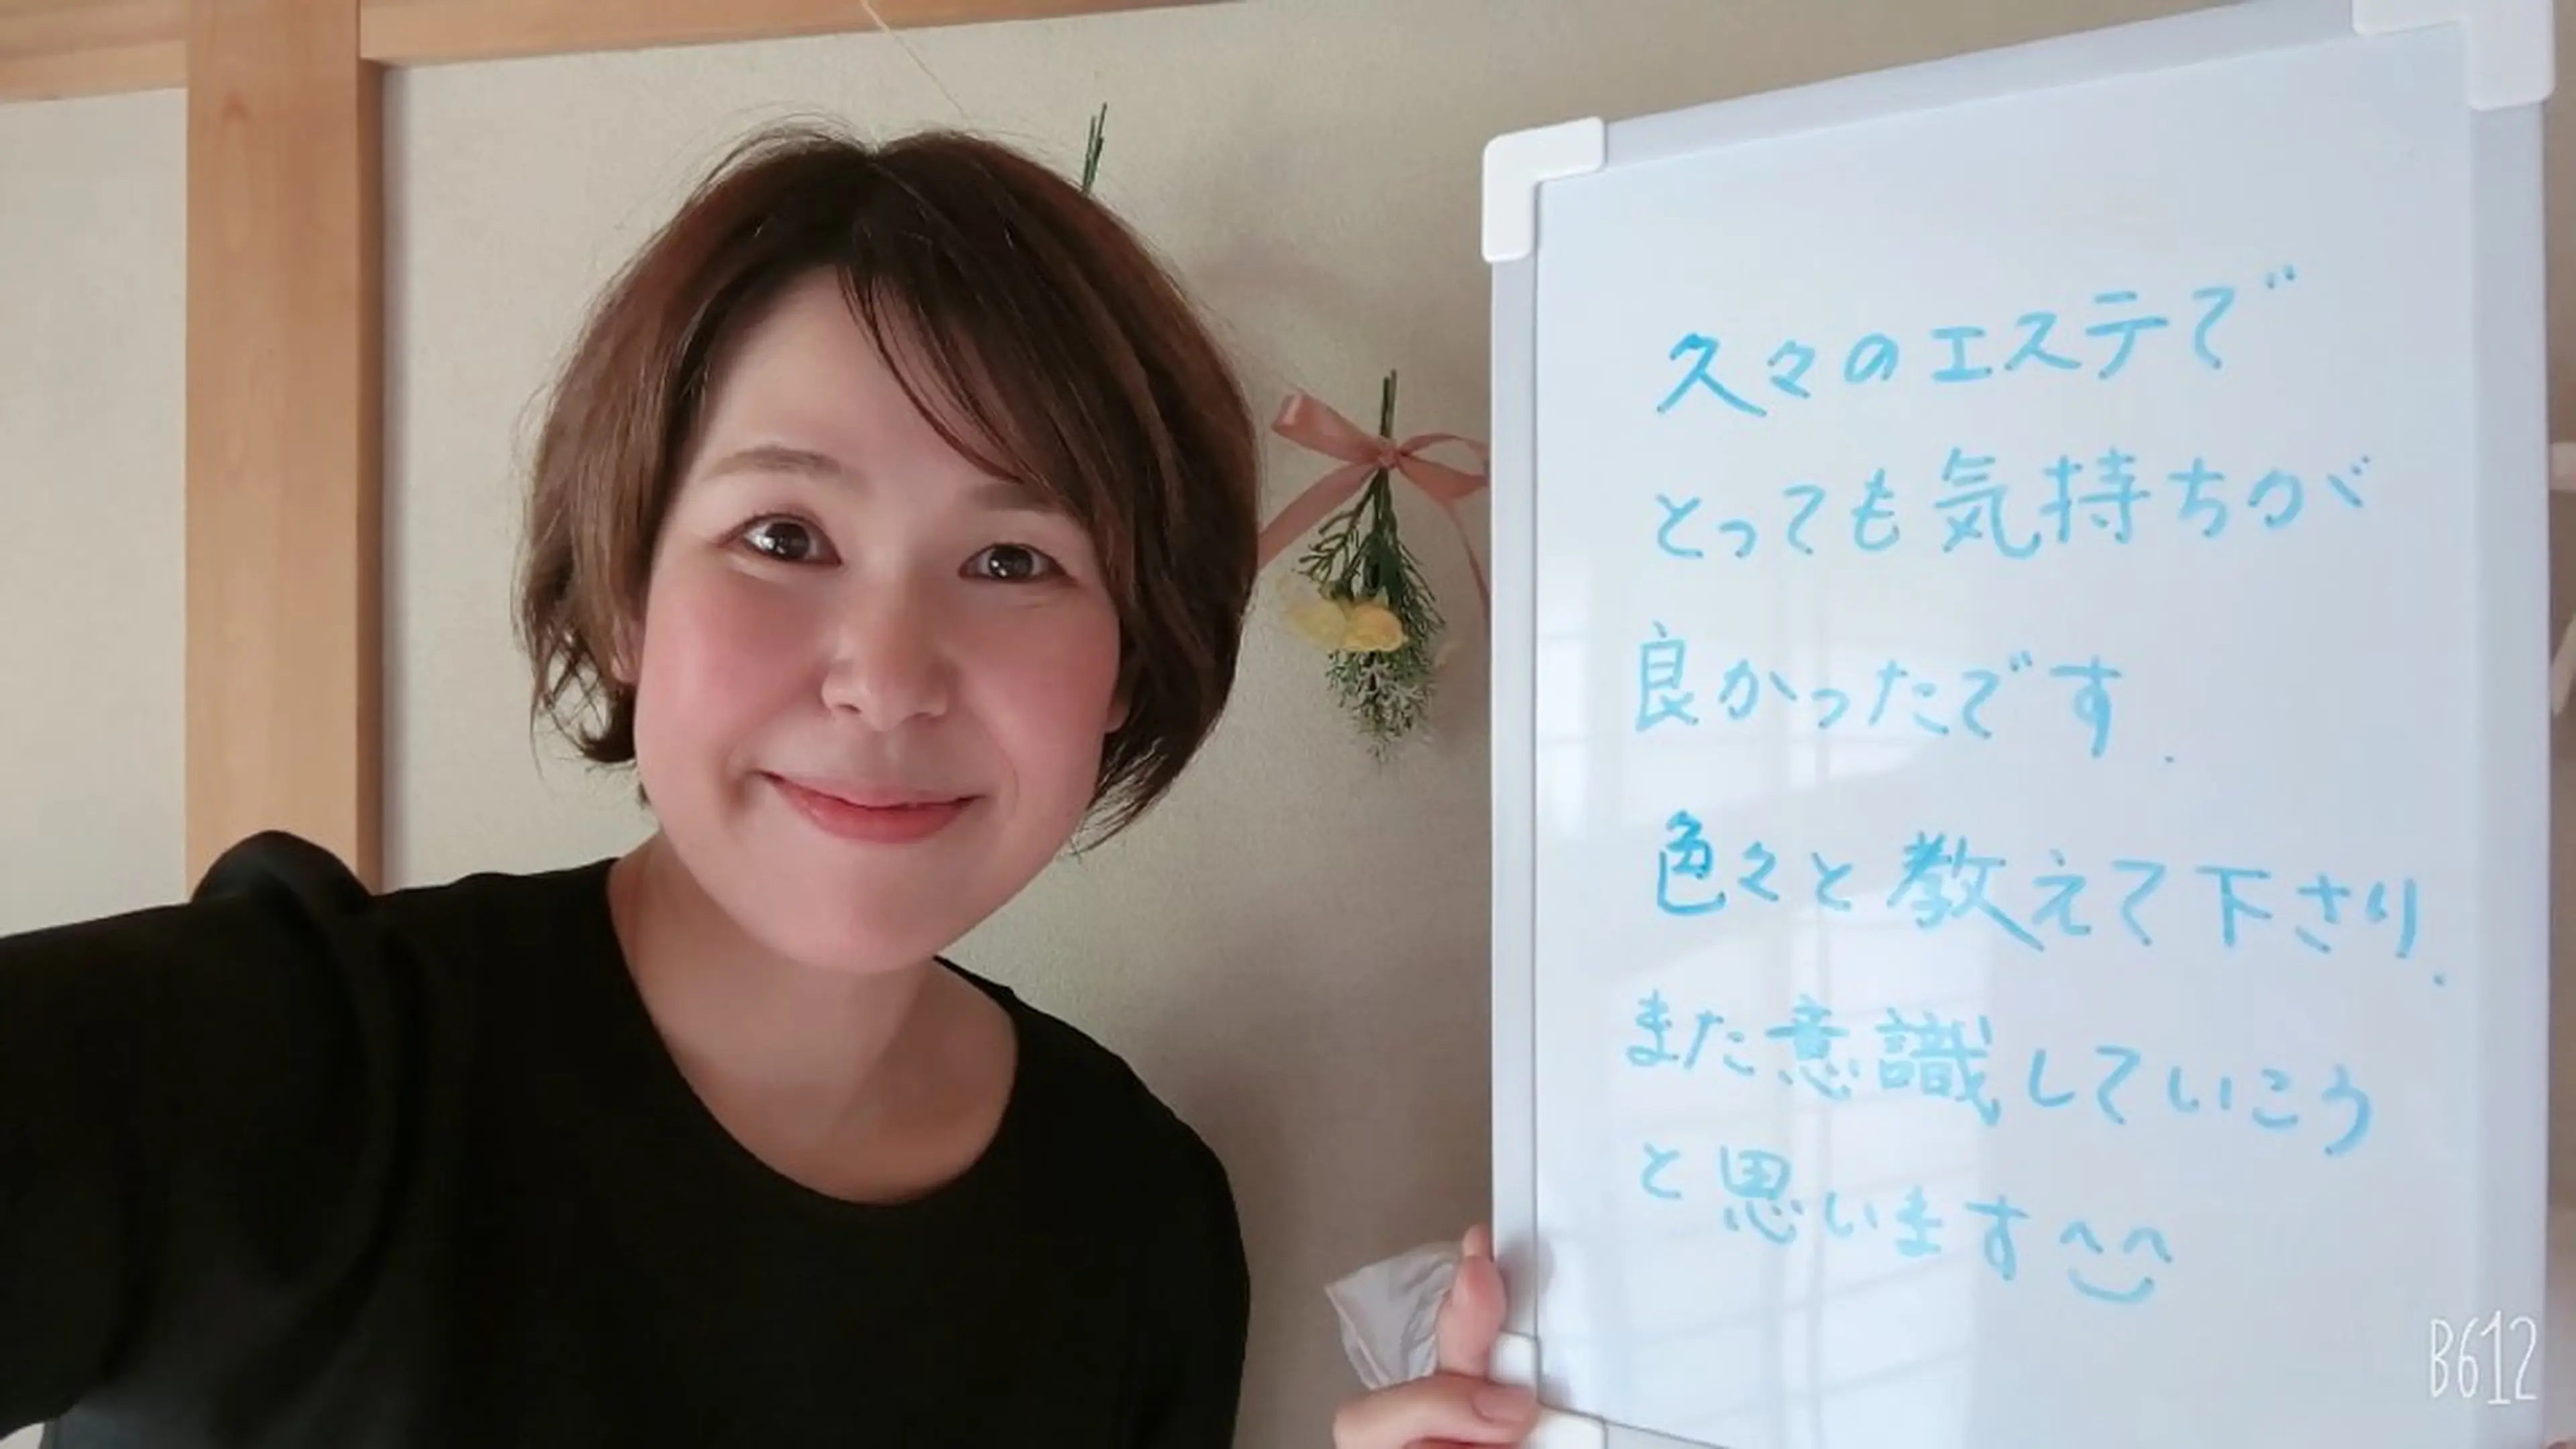 久々のエステで
とっても気持ちが
良かったです.
色々と教えて下さり.
また意識していこう
と思います^^
B612